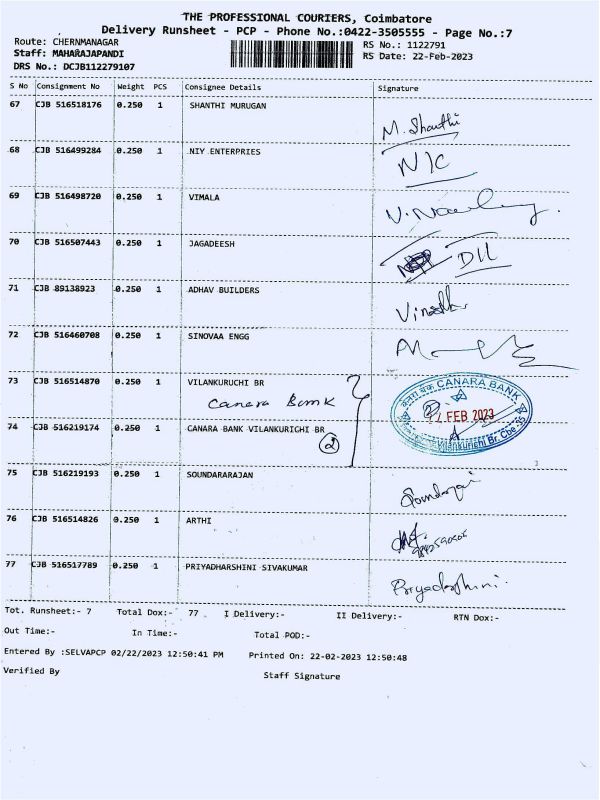 THE PROFESSIONAL COURIERS, Coimbatore
Delivery Runsheet - PCP - Phone No.:0422-3505555 - Page No.:7
Route: CHERNMANAGAR
Staff: MAHARAJAPANDI
DRS No.: DCJB112279107
RS No.: 1122791
RS Date: 22-Feb-2023
S No Consignment No Weight PCS Consignee Details Signature
67 CJB 516518176 0.250 1 SHANTHI MURUGAN
M. Shanthi
68 CJB 516499284 0.250 1 NIY ENTERPRIES
NIC
69 CJB 516498720 0.250 1 VIMALA
70 CJB 516507443 0.250 1 JAGADEESH
71 CJB 89138923 0.250 1 ADHAV BUILDERS
72 CJB 516460708 0.250 1 SINOVAA ENGG
73 CJB 516514870 0.250 1 VILANKURUCHI BR
Canara Bank
केनरा बैंक CANARA BANK
FEB 2023
Vilankurichi Br. Cbe-35
74 CJB 516219174 0.250 1 CANARA BANK VILANKURICHI BR
2
75 CJB 516219193 0.250 1 SOUNDARARAJAN
76 CJB 516514826 0.250 1 ARTHI
77 CJB 516517789 0.250 1 PRIYADHARSHINI SIVAKUMAR
Priyadarshini
Tot. Runsheet:- 7 Total Dox:- 77 I Delivery:- II Delivery:- RTN Dox:-
Out Time:- In Time:- Total POD:-
Entered By :SELVAPCP 02/22/2023 12:50:41 PM Printed On: 22-02-2023 12:50:48
Verified By Staff Signature